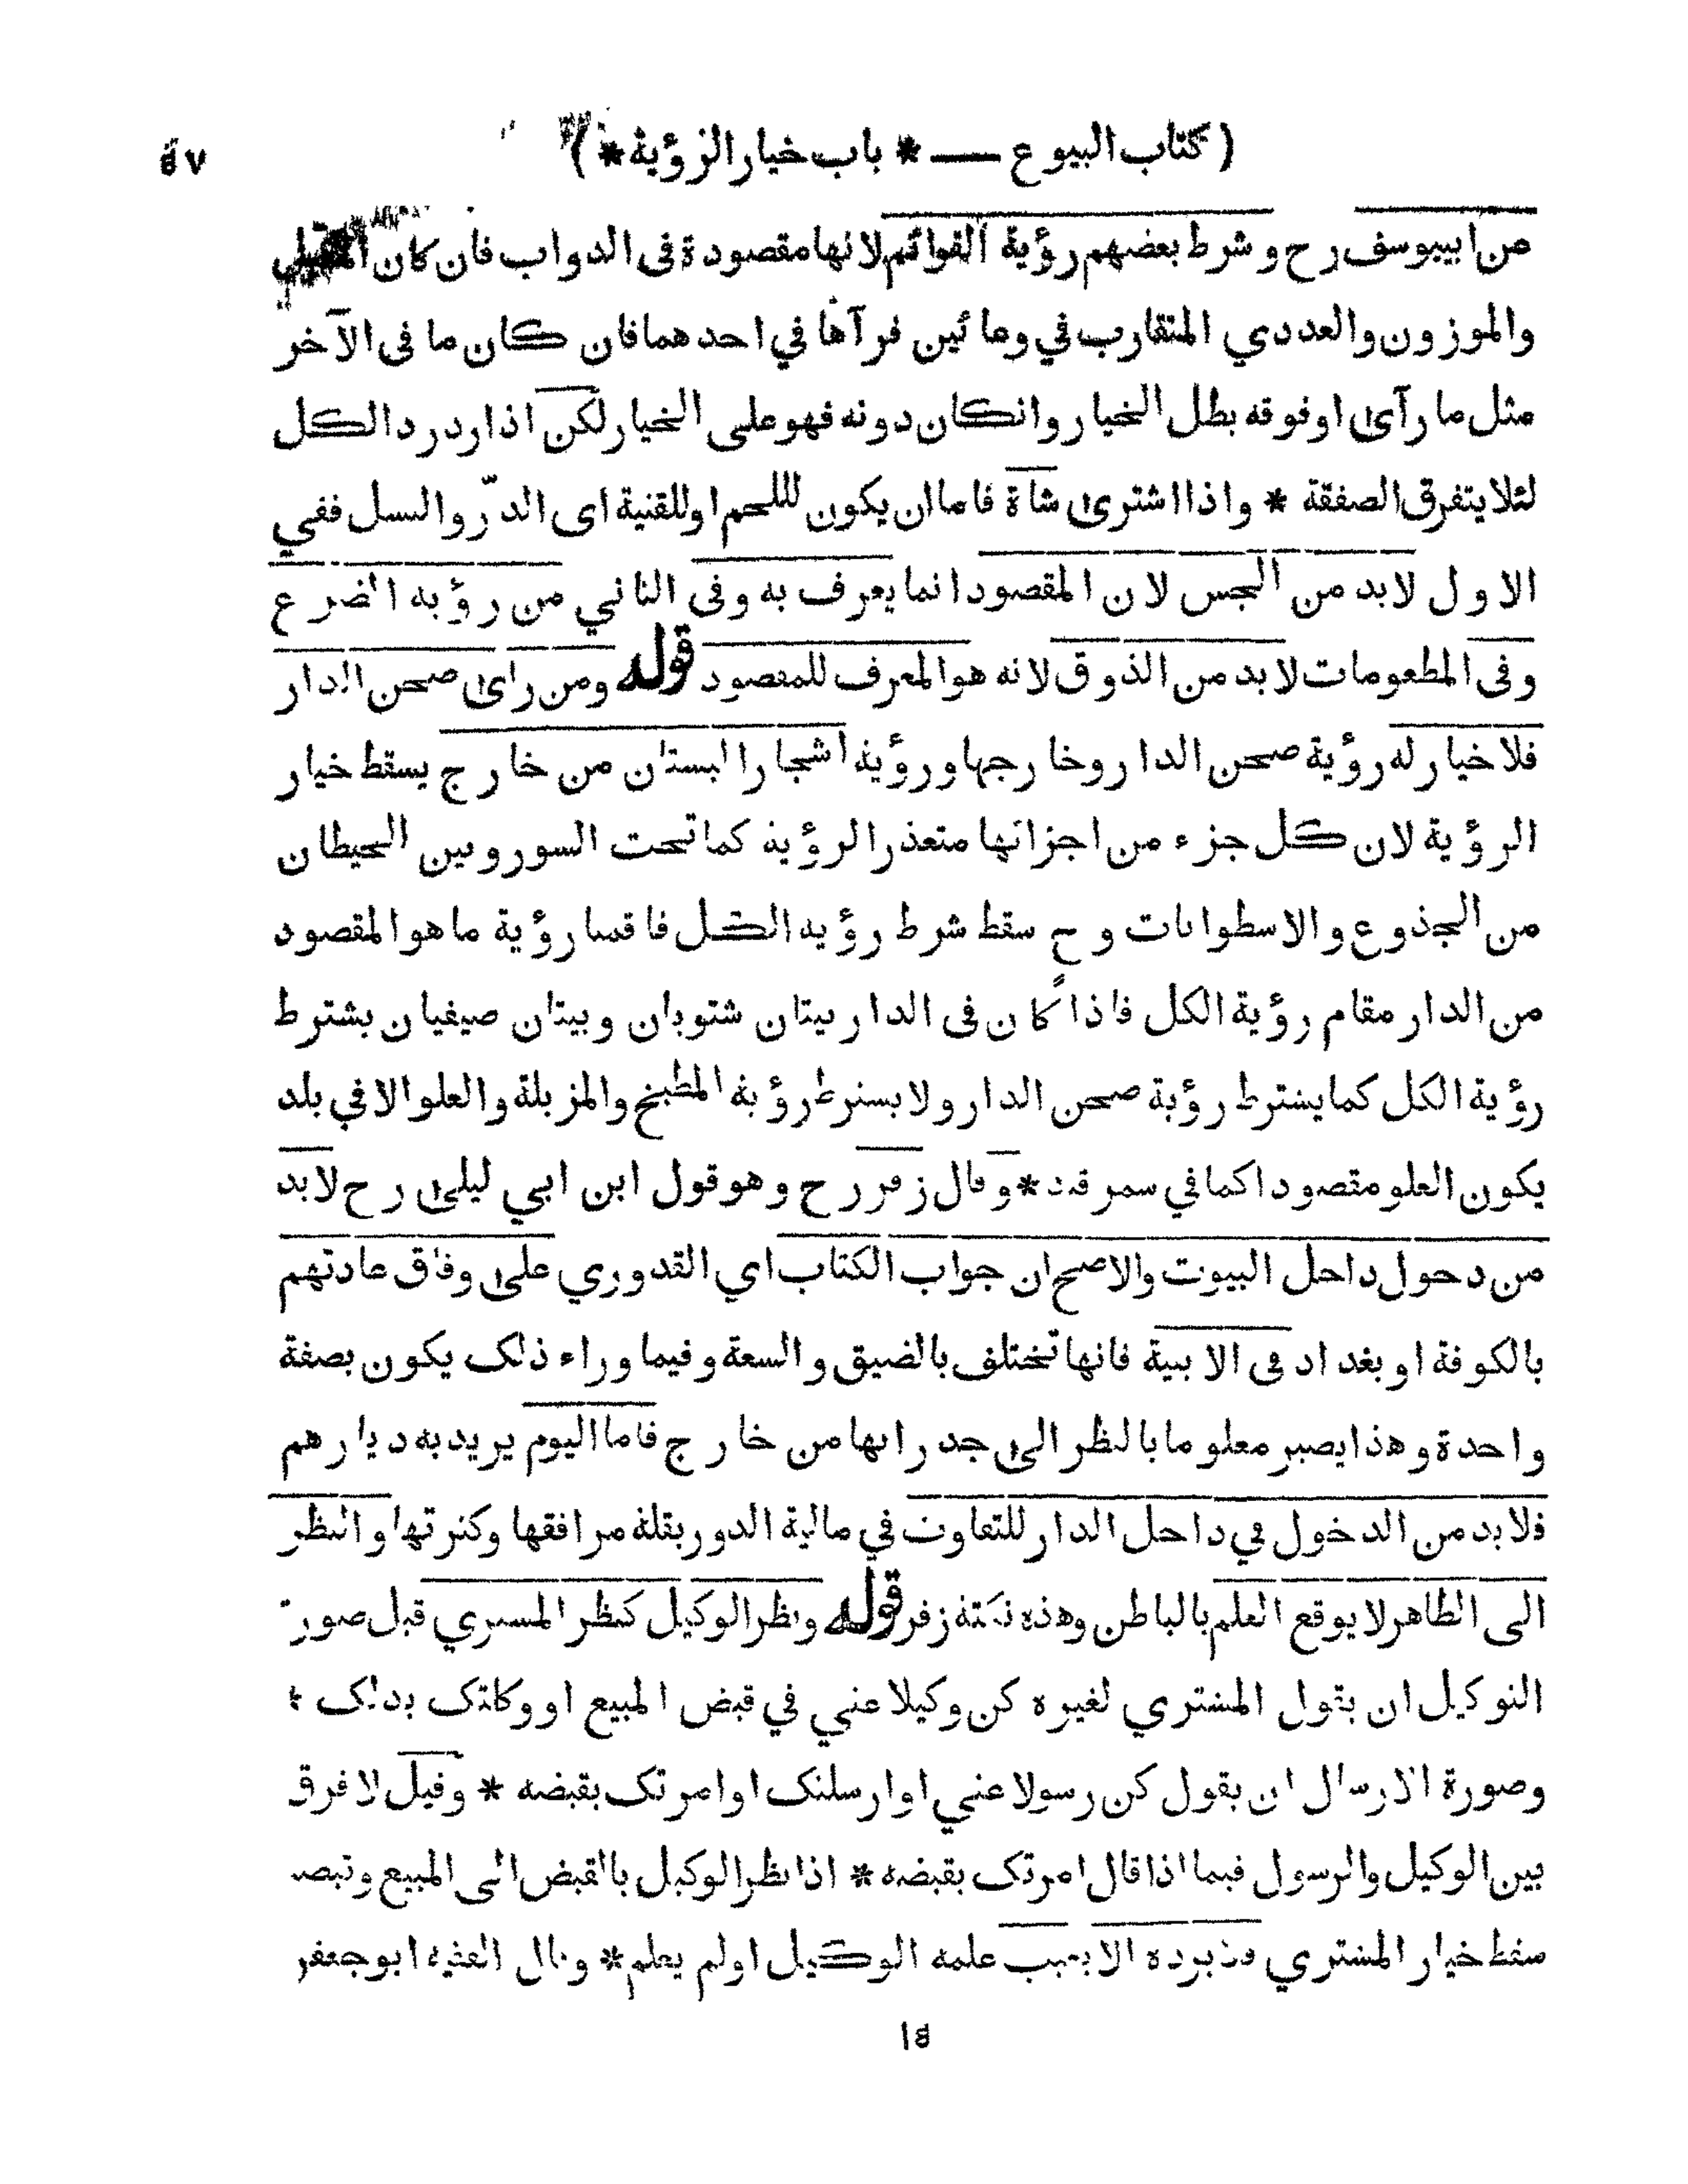 ( كتاب البيوع — * باب خيار الرؤية * )
٥٧
من ابييوسف رح وشرط بعضهم رؤية القوائم لانها مقصودة فى الدواب فان كان
والموزون والعددي المتقارب في وعائين فرآها في احدهما فان كان ما فى الآخر
مثل ما رآى او فوقه بطل الخيار وانكان دونه فهو على الخيار لكن اذا رد رد الكل
لئلا يتفرق الصفقة * واذا اشترى شاة فاما ان يكون لللحم او للقنية اى الدرّ والنسل ففي
الاول لابد من الجس لان المقصود انما يعرف به وفى الثاني من رؤية الضرع
وفى المطعومات لابد من الذوق لانه هو المعرف للمقصود قوله ومن راى صحن الدار
فلا خيار له رؤية صحن الدار وخارجها ورؤية اشجار البستان من خارج يسقط خيار
الرؤية لان كل جزء من اجزائها متعذر الرؤية كما تحت السور وبين الحيطان
من الجذوع والاسطوانات وح سقط شرط رؤية الكل فاقمنا رؤية ما هو المقصود
من الدار مقام رؤية الكل فاذا كان فى الدار بيتان شتويان وبيتان صيفيان يشترط
رؤية الكل كما يشترط رؤية صحن الدار ولا يشترط رؤية المطبخ والمزبلة والعلو الا في بلد
يكون العلو مقصودا كما في سمرقند * وقال زفر رح وهو قول ابن ابي ليلى رح لابد
من دخول داخل البيوت والاصح ان جواب الكتاب اي القدوري على وفاق عادتهم
بالكوفة او بغداد فى الابنية فانها تختلف بالضيق والسعة وفيما وراء ذلك يكون بصفة
واحدة وهذا يصير معلوما بالنظر الى جدرانها من خارج فاما اليوم يريد به ديارهم
فلابد من الدخول في داخل الدار للتفاوت في مالية الدور بقلة مرافقها وكثرتها والنظر
الى الظاهر لا يوقع العلم بالباطن وهذه نكتة زفر قوله ونظر الوكيل كنظر المشتري قيل صورة
التوكيل ان يقول المشتري لغيره كن وكيلا عني في قبض المبيع او وكلتك بذلك *
وصورة الارسال ان يقول كن رسولا عني او ارسلتك او امرتك بقبضه * وقيل لا فرق
بين الوكيل والرسول فيما اذا قال امرتك بقبضه * اذا نظر الوكيل بالقبض الى المبيع وقبضه
سقط خيار المشتري فلا يرده الا بعيب علمه الوكيل او لم يعلم * وقال الفقيه ابو جعفر
١٥